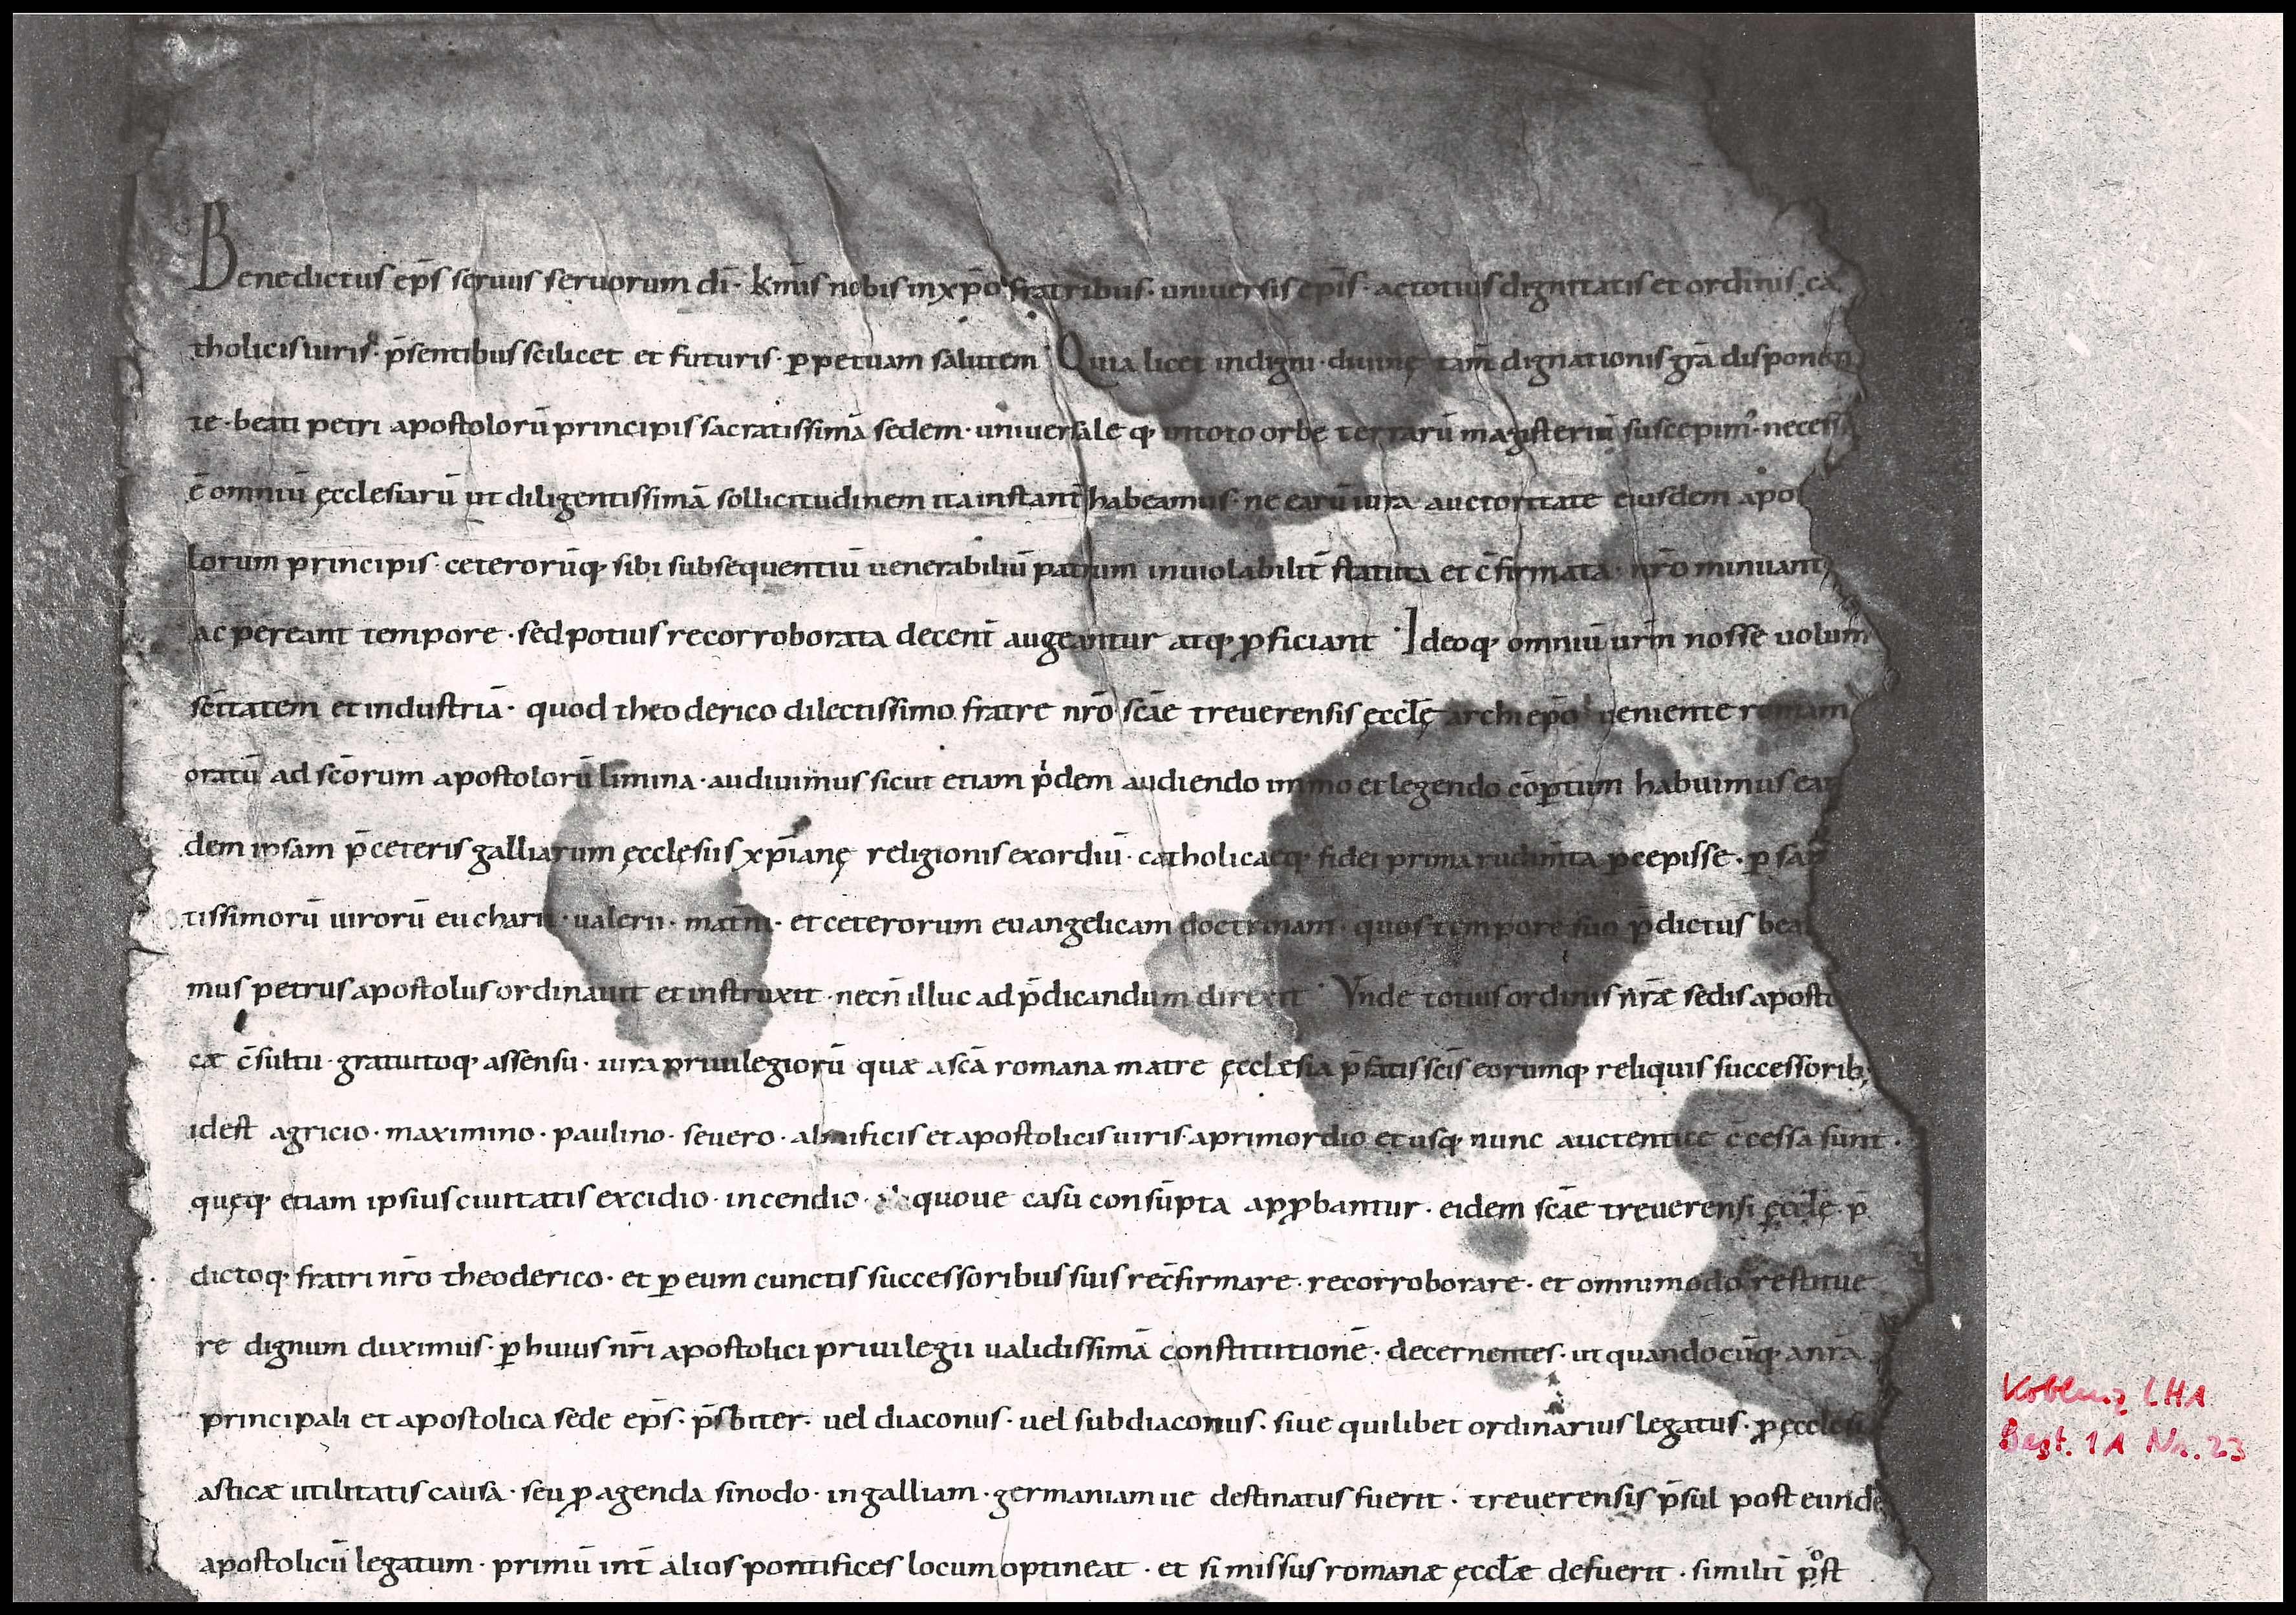 Benedictus ep̄s seruus seruorum dī· k̄mis nobis in xp̄o fratribus· uniuersis ep̄is· ac totius dignitatis et ordinis ca
tholicis uiris· p̄sentibus scilicet et futuris· ꝑpetuam salutem· Quia licet indigni· diuinę tam̄ dignationis gr̄a disponen
te· beati petri apostolorū principis sacratissimā sedem· uniuersale q; in toto orbe terrarū magisteriū suscepim᾽· necess
ē omniū ęcclesiarū ut diligentissimā sollicitudinem ita instant̄ habeamus· ne earū iura auctoritate eiusdem apo
lorum principis· ceterorūq; sibi subsequentiū uenerabiliū patrum inuiolabilit̄ statuta et c̄firmata· nr̄o minuant
ac pereant tempore· sed potius recorroborata decent̄ augeantur atq; ꝓficiant· Ideoq; omniū ur̄m nosse uolum
sc̄itatem et industriā· quod theoderico dilectissimo fratre nr̄o sc̄ae treuerensis ęccl̄ę archiep̄o ueniente romam
oratū ad sc̄orum apostolorū limina· audiuimus sicut etiam p̄dem audiendo immo et legendo cōꝑtum habuimus ean
dem ipsam p̄ ceteris galliarum ęcclęsiis xp̄ianę religionis exordiū· catholicaeq; fidei prima rudim̄ta ꝑcepisse· ꝑ san
tissimorū uirorū eucharii· ualerii· mat̄ni· et ceterorum euangelicam doctrinam· quos tempore suo p̄dictus bea
mus petrus apostolus ordinauit et instruxit· necn̄ illuc ad p̄dicandum direxit· Vnde totius ordinis nr̄æ sedis aposto
cæ c̄sultu· gratuitoq; assensu· iura priuilegiorū quæ a sc̄a romana matre ęcclæsia p̄fatis sc̄is eorumq; reliquis successorib;
idest agricio· maximino· paulino· seuero· almificis et apostolicis uiris· a primordio et usq; nunc auctentice c̄cessa sunt·
quęq; etiam ipsius ciuitatis excidio· incendio· quoue casu consūpta apꝓbantur· eidem sc̄ae treuerensi ęccl̄ę· p̄
dictoq; fratri nr̄o theoderico· et ꝑ eum cunctis successoribus suis rec̄firmare· recorroborare· et omnimodo restitue
re dignum duximus· ꝑ huius nr̄i apostolici priuilegii ualidissimā constitutionē· decernentes· ut quandocūq; a nr̄a
principali et apostolica sede ep̄s· p̄sbiter· uel diaconus· uel subdiaconus· siue quilibet ordinarius legatus· ꝓ ęcclesi
asticæ utilitatis causa· seu ꝓ agenda sinodo· in galliam· germaniamue destinatus fuerit· treuerensis p̄sul post eundē
apostolicū legatum· primū int̄ alios pontifices locum optineat· et si missus romanæ ęccl̄æ defuerit· similit̄ post
Koblenz LHA
Best. 1 A Nr. 23